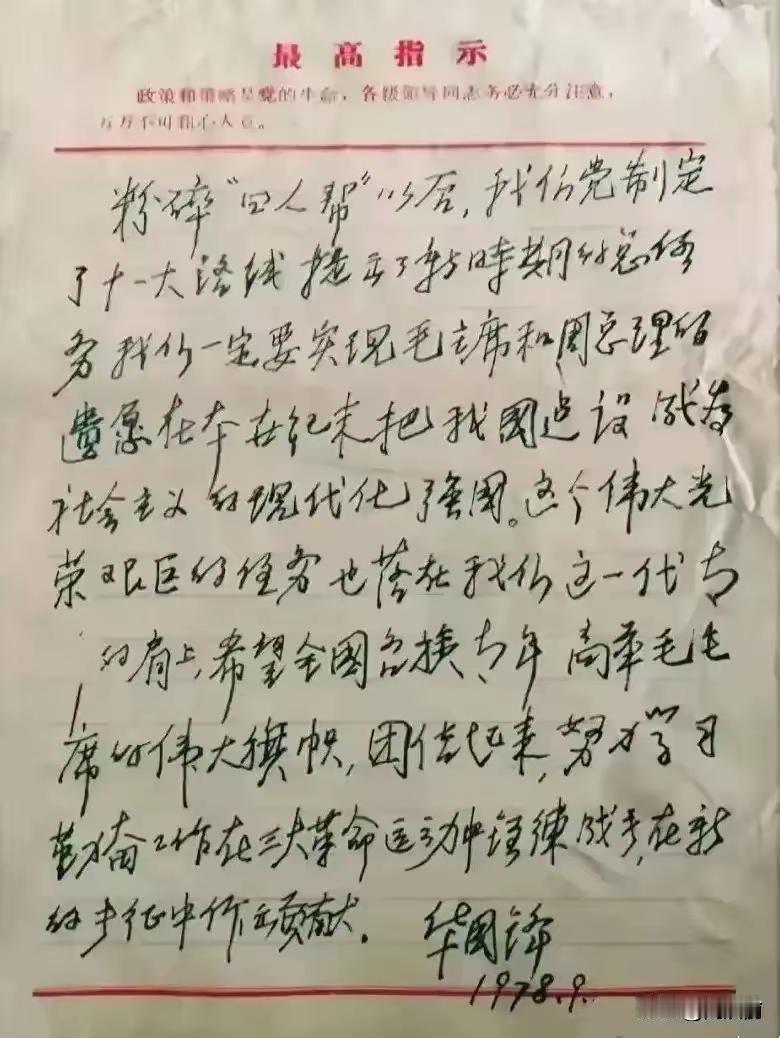 最高指示
政策和策略是党的生命，各级领导同志务必充分注意，
万万不可粗心大意。
粉碎“四人帮”以后，我们党制定
了十一大路线 提出了新時期的总任
务 我们一定要实现毛主席和周总理的
遗愿在本世纪末把我國建设成为
社会主义的现代化强國。这个伟大光
荣艰巨的任务也落在我们这一代青
的肩上，希望全國各族青年 高举毛主
席的伟大旗帜，团结起来，努力学习
勤奋工作在三大革命运动中锻练成长，在新
的长征中作出贡献。 华國锋
1978.9.